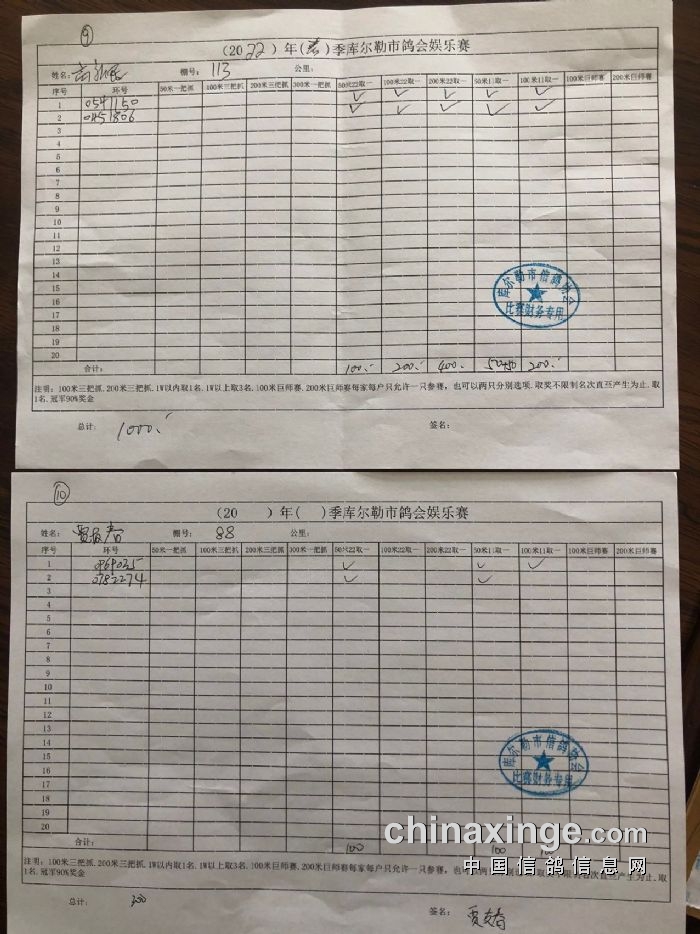 ⑨
(2022)年(春)季库尔勒市鸽会娱乐赛
姓名: 棚号: 113 公里:
序号 环号 50米一把抓 100米三把抓 200米三把抓 300米一把抓 50只22取一 100米22取一 200米22取一 50米11取一 100米11取一 100米巨师赛 200米巨师赛
1 0541150 ✓ ✓ ✓ ✓ ✓
2 0451806 ✓ ✓ ✓ ✓ ✓
3
4
5
6
7
8
9
10
11
12
13
14
15
16
17
18
19
20
合计: 100 200 400 200
库尔勒市信鸽协会
比赛财务专用
注明: 100米三把抓.200米三把抓.1W以内取1名.1W以上取3名.100米巨师赛.200米巨师赛每家每户只允许一只参赛,也可以两只分别选项.取奖不限制名次直至产生为止.取
1名.冠军90%奖金
总计: 1000 签名:
⑩
(20 )年( )季库尔勒市鸽会娱乐赛
姓名: 棚号: 88 公里:
序号 环号 50米一把抓 100米三把抓 200米三把抓 300米一把抓 50只22取一 100米22取一 200米22取一 50米11取一 100米11取一 100米巨师赛 200米巨师赛
1 ✓ ✓ ✓
2 0782274 ✓ ✓
3
4
5
6
7
8
9
10
11
12
13
14
15
16
17
18
19
20
合计: 100 100
库尔勒市信鸽协会
比赛财务专用
chinaxinge.com
中国信鸽信息网
注明: 100米三把抓.200米三把抓.1W以内取1名.1W以上取3名.100米巨师赛.200米巨师赛每家每户只允许一只参赛,也可以两只分别选项.取奖不限制名次直至产生为止.取
1名.冠军90%奖金
总计: 300 签名: